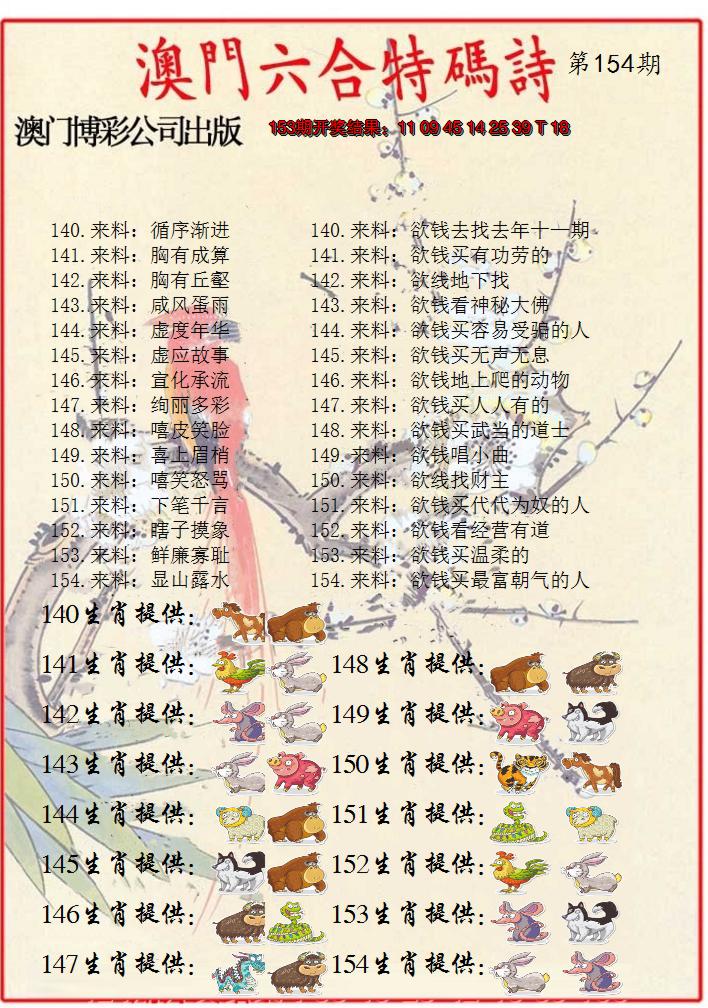 澳門六合特碼詩 第154期
澳门博彩公司出版 153期开奖结果：11 09 45 14 25 39 T 18
140.来料：循序渐进 140.来料：欲钱去找去年十一期
141.来料：胸有成算 141.来料：欲钱买有功劳的
142.来料：胸有丘壑 142.来料：欲线地下找
143.来料：咸风蛋雨 143.来料：欲钱看神秘大佛
144.来料：虚度年华 144.来料：欲钱买容易受骗的人
145.来料：虚应故事 145.来料：欲钱买无声无息
146.来料：宣化承流 146.来料：欲钱地上爬的动物
147.来料：绚丽多彩 147.来料：欲钱买人人有的
148.来料：嘻皮笑脸 148.来料：欲钱买武当的道士
149.来料：喜上眉梢 149.来料：欲钱唱小曲
150.来料：嘻笑怒骂 150.来料：欲线找财主
151.来料：下笔千言 151.来料：欲钱买代代为奴的人
152.来料：瞎子摸象 152.来料：欲钱看经营有道
153.来料：鲜廉寡耻 153.来料：欲钱买温柔的
154.来料：显山露水 154.来料：欲钱买最富朝气的人
140生肖提供：
141生肖提供： 148生肖提供：
142生肖提供： 149生肖提供：
143生肖提供： 150生肖提供：
144生肖提供： 151生肖提供：
145生肖提供： 152生肖提供：
146生肖提供： 153生肖提供：
147生肖提供： 154生肖提供：